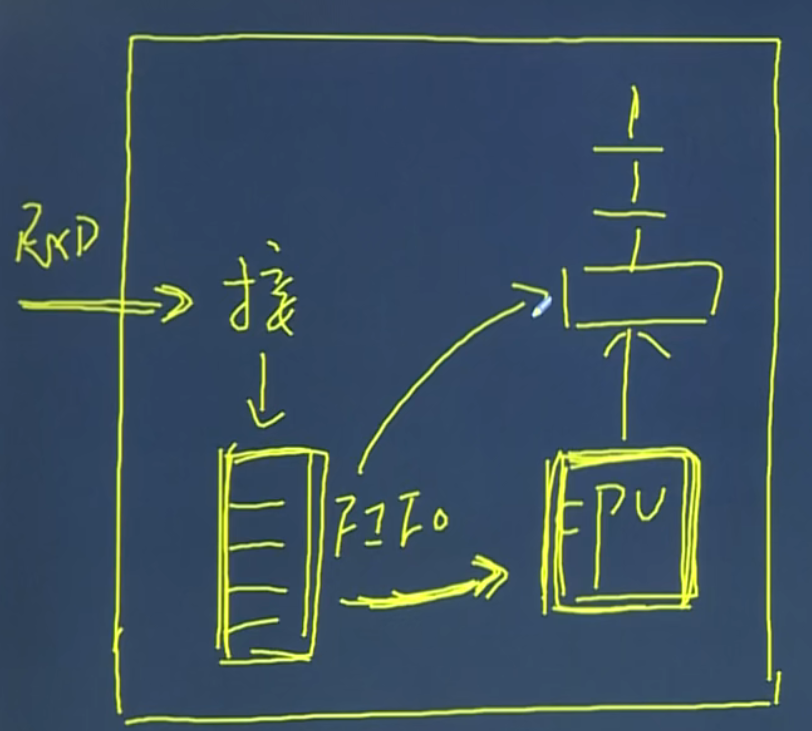 RXD
接
FIFO
CPU